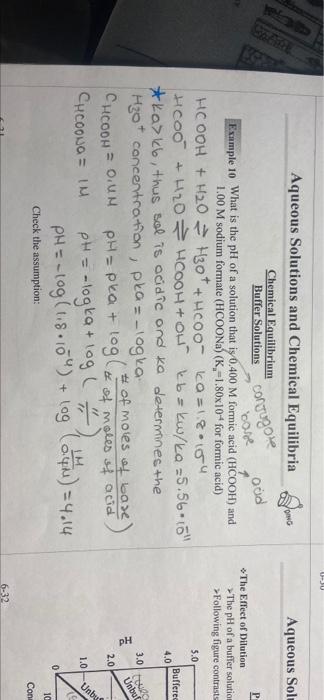 Aqueous Solutions and Chemical Equilibria
DING
Chemical Equilibrium
Buffer Solutions
conjugate base
acid
Example 10 What is the pH of a solution that is 0.400 M formic acid (HCOOH) and
1.00 M sodium formate (HCOONa) (Ka=1.80x10-4 for formic acid)
HCOOH + H2O ⇌ H3O+ + HCOO- ka=1.8•10-4
HCOO- + H2O ⇌ HCOOH + OH- kb=kw/ka=5.56•10-11
★ka>kb, thus sol is acidic and ka determines the
H3O+ concentration, pka=-logka
CHCOOH = 0.4M pH=pka + log(# of moles of base / # of moles of acid)
CHCOONa = 1M pH=-logka + log( " )
pH=-log(1.8•10-4) + log (1M / 0.4M) = 4.14
Check the assumption:
Aqueous Sol
❖The Effect of Dilution
➤The pH of a buffer solution
➤Following figure contrasts
5.0
4.0
3.0
2.0
1.0
0
pH
Buffere
Unbuf
Unbu
10
Con
6-32